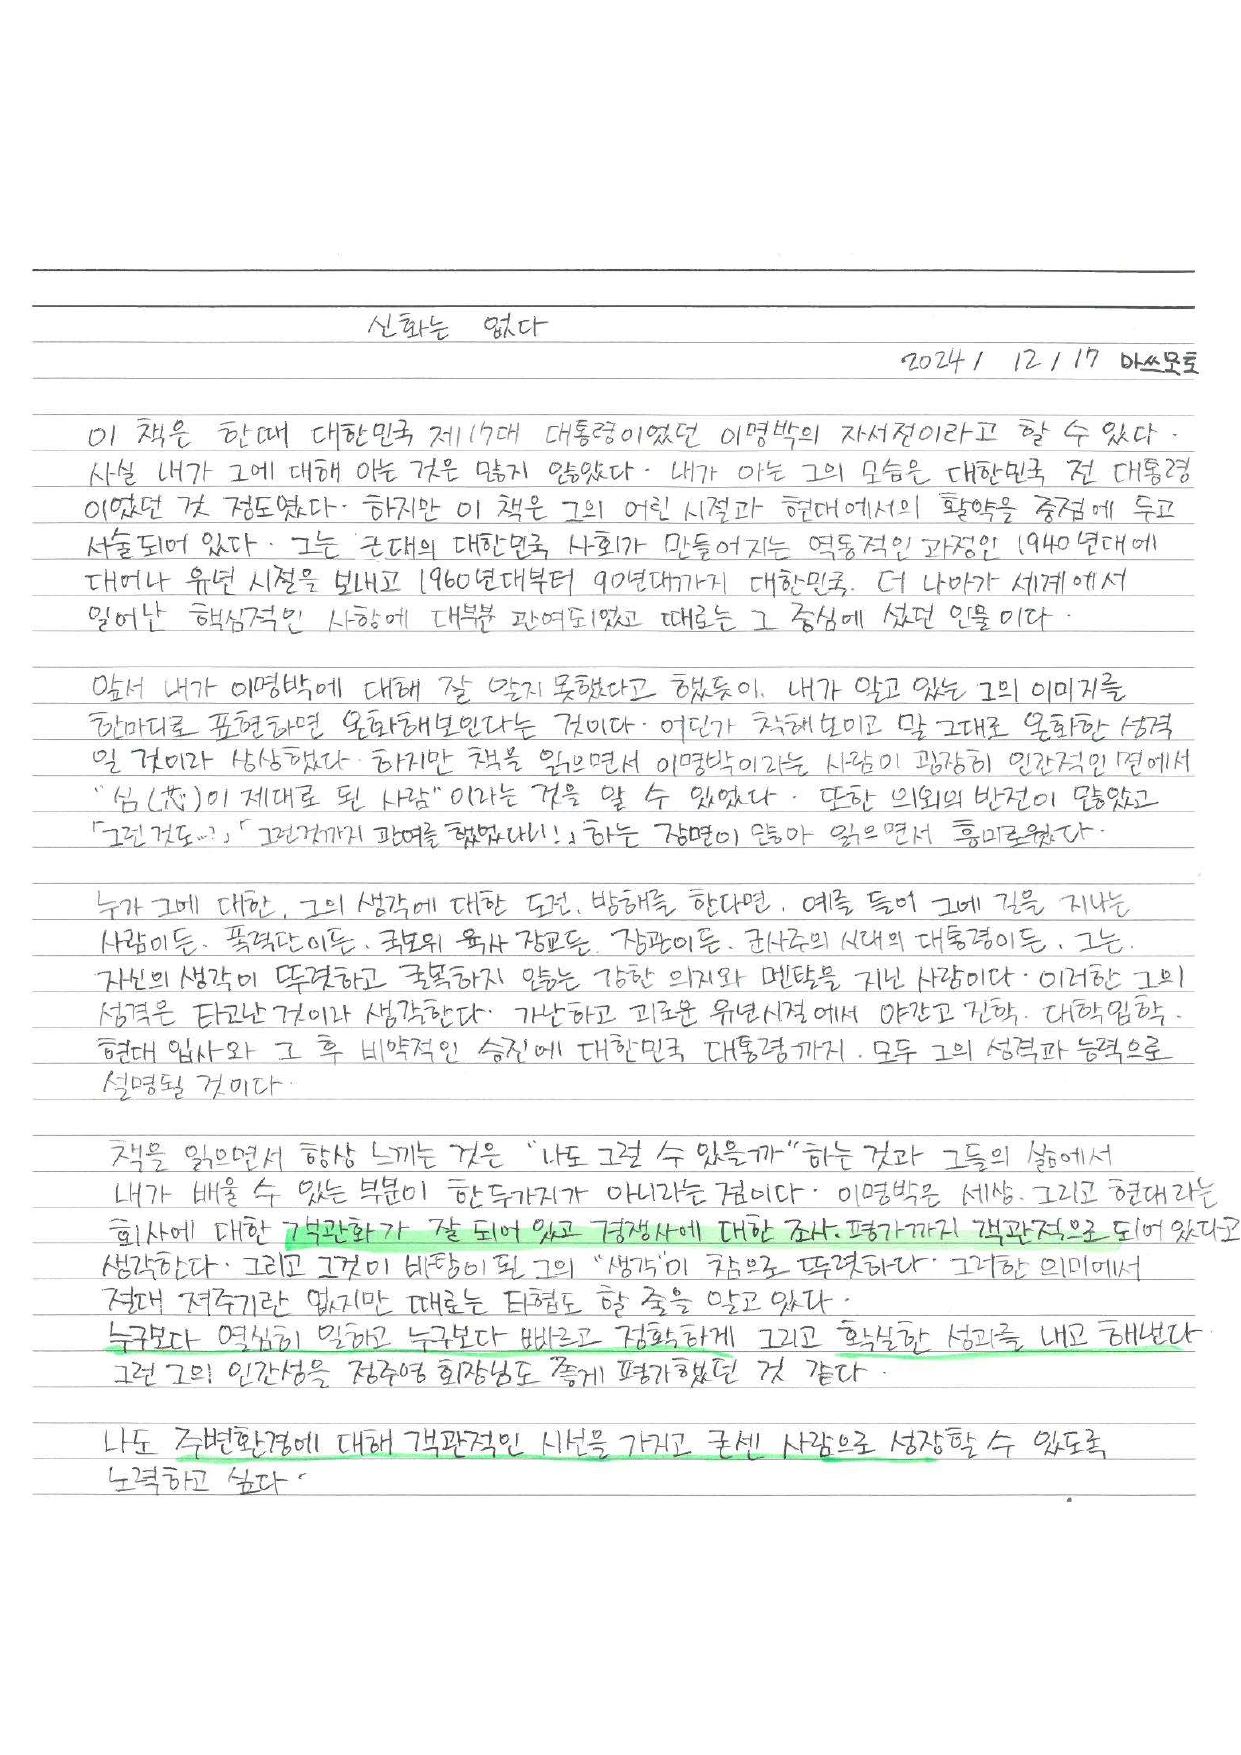 신화는 없다
2024/ 12/17 마쓰모토
이 책은 한때 대한민국 제17대 대통령이었던 이명박의 자서전이라고 할 수 있다.
사실 내가 그에 대해 아는 것은 많지 않았다. 내가 아는 그의 모습은 대한민국 전 대통령
이었던 것 정도였다. 하지만 이 책은 그의 어린 시절과 현대에서의 활약을 중점에 두고
서술되어 있다. 그는 근대의 대한민국 사회가 만들어지는 역동적인 과정인 1940년대에
태어나 유년 시절을 보내고 1960년대부터 90년대까지 대한민국. 더 나아가 세계에서
일어난 핵심적인 사항에 대부분 관여되었고 때로는 그 중심에 섰던 인물이다.
앞서 내가 이명박에 대해 잘 알지 못했다고 했듯이. 내가 알고 있는 그의 이미지를
한마디로 표현하면 온화해보인다는 것이다. 어딘가 착해보이고 말 그대로 온화한 성격
일 것이라 상상했다. 하지만 책을 읽으면서 이명박이라는 사람이 굉장히 인간적인 면에서
"심(芯)이 제대로 된 사람"이라는 것을 알 수 있었다. 또한 의외의 반전이 많았고
「그런것도...?」「그런것까지 관여를 했었다니!」하는 장면이 많아 읽으면서 흥미로웠다.
누가 그에 대한, 그의 생각에 대한 도전, 방해를 한다면, 예를 들어 그에 길을 지나는
사람이든. 폭력단이든. 국보위 육사 장교든. 장관이든. 군사주의 시대의 대통령이든. 그는.
자신의 생각이 뚜렷하고 굴복하지 않는 강한 의지와 멘탈을 지닌 사람이다. 이러한 그의
성격은 타고난것이라 생각한다. 가난하고 괴로운 유년시절에서 야간고 진학. 대학입학.
현대 입사와 그 후 비약적인 승진에 대한민국 대통령까지. 모두 그의 성격과 능력으로
설명될 것이다.
책을 읽으면서 항상 느끼는 것은 "나도 그럴 수 있을까"하는것과 그들의 삶에서
내가 배울 수 있는 부분이 한두가지가 아니라는 점이다. 이명박은 세상. 그리고 현대라는
회사에 대한 객관화가 잘 되어 있고 경쟁사에 대한 조사. 평가까지 객관적으로 되어 있다고
생각한다. 그리고 그것이 바탕이 된 그의 "생각"이 참으로 뚜렷하다. 그러한 의미에서
절대 져주기란 없지만 때로는 타협도 할 줄을 알고 있다.
누구보다 열심히 일하고 누구보다 빠르고 정확하게 그리고 확실한 성과를 내고 해낸다
그런 그의 인간성을 정주영 회장님도 좋게 평가했던 것 같다.
나도 주변환경에 대해 객관적인 시선을 가지고 굳센 사람으로 성장할 수 있도록
노력하고 싶다.